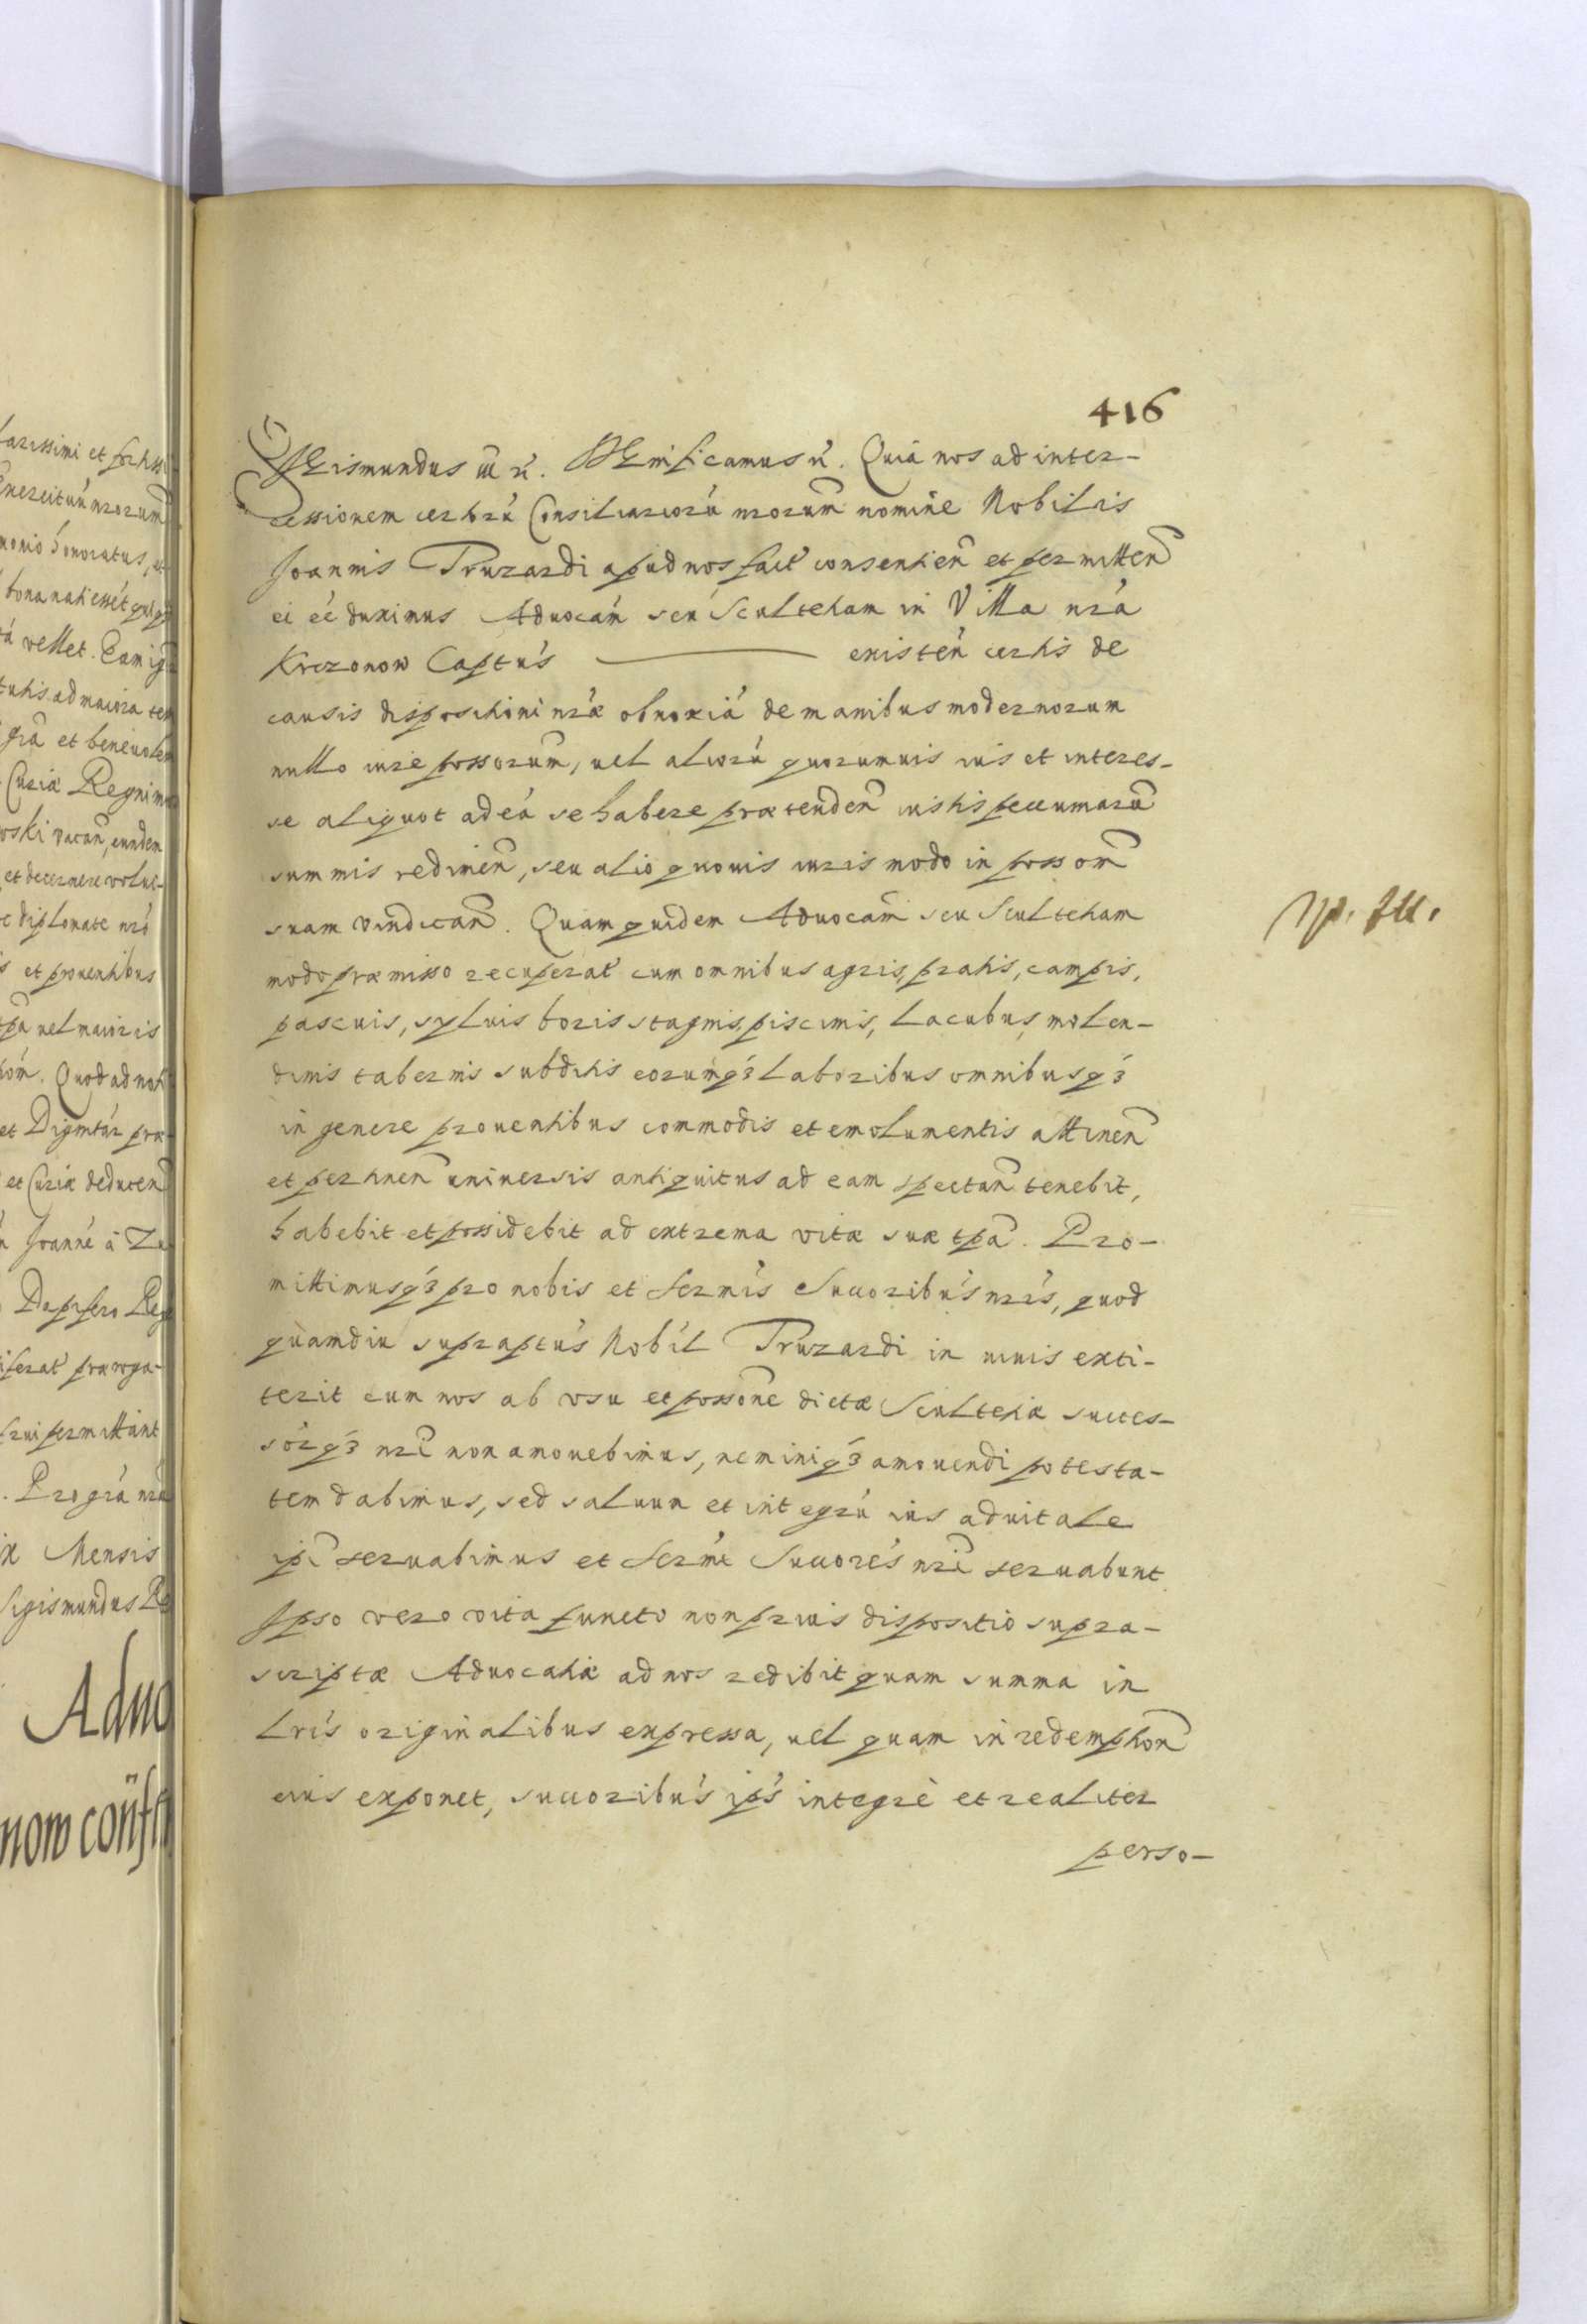 416
Sigismundus III etc. Significamus etc. Quia nos ad inter-
cessionem certorũ Consiliariorũ nrorum nomine Nobilis
Joannis Truzardi apud nos fact consentien et permitten
ei eé duximus Aduocań seu Scultetiam in Villa nrá
Krczonow Captús existeń certis de
causis dispositioni nrae obnoxiá de manibus modernorum
nullo iure possorum, uel aliorú quorumuis ius et interes-
se aliquot ad eá se habere praetenden iustis pecuniarũ
summis redimen, seu alio quouis iuris modo in possom
suam vindican. Quam quidem Aduocam seu Scultetiam
modo praemisso recuperat cum omnibus agris, pratis, campis,
pascuis, syluis boris stagnis, piscinis, lacubus, molen-
dinis tabernis subditis eorumq3 laboribus omnibusq3
in genere prouentibus commodis et emolumentis attinen
et pertinen uniuersis antiquitus ad eam spectan tenebit,
habebit et possidebit ad extrema vitae suae tpa. Pro-
mittimusq3 pro nobis et Sermís Succoribús nrís, quod
quamdiu supraptús Nobíl Truzardi in uiuis exti-
terit eum nos ab vsu et possone dictae Scultetiae succes-
sórq3 nri non amouebimus, neminiq3 amouendi potesta-
tem dabimus, sed saluum et integrú ius aduitale
ipi seruabimus et Sermi Succorés nri seruabunt
Ipso vero vita functo non prius dispositio supra-
scriptae Aduocatiae ad nos redibit quam summa in
Lrís originalibus expressa, uel quam in redemption
eius exponet, succoribús ips integrè et realiter
perso-
larissimi et fortiss
exercituú nrorum
bona nati essét
vellet. Eam ig
tulis ad maiora
grá et beneuolen
Curiae Regni
owski vacan, eundem
et decernere volui-
diplomate nró
et prouentibus
tpa uel maioris
Quod ad noti
et Dignitár prae
et Curiae deducen
Joanné à Za
Dapifero Reg
praeroga-
frui permittánt
. Pro grá nra
Mensis
Sigismundus Re
Aduo
now conſt